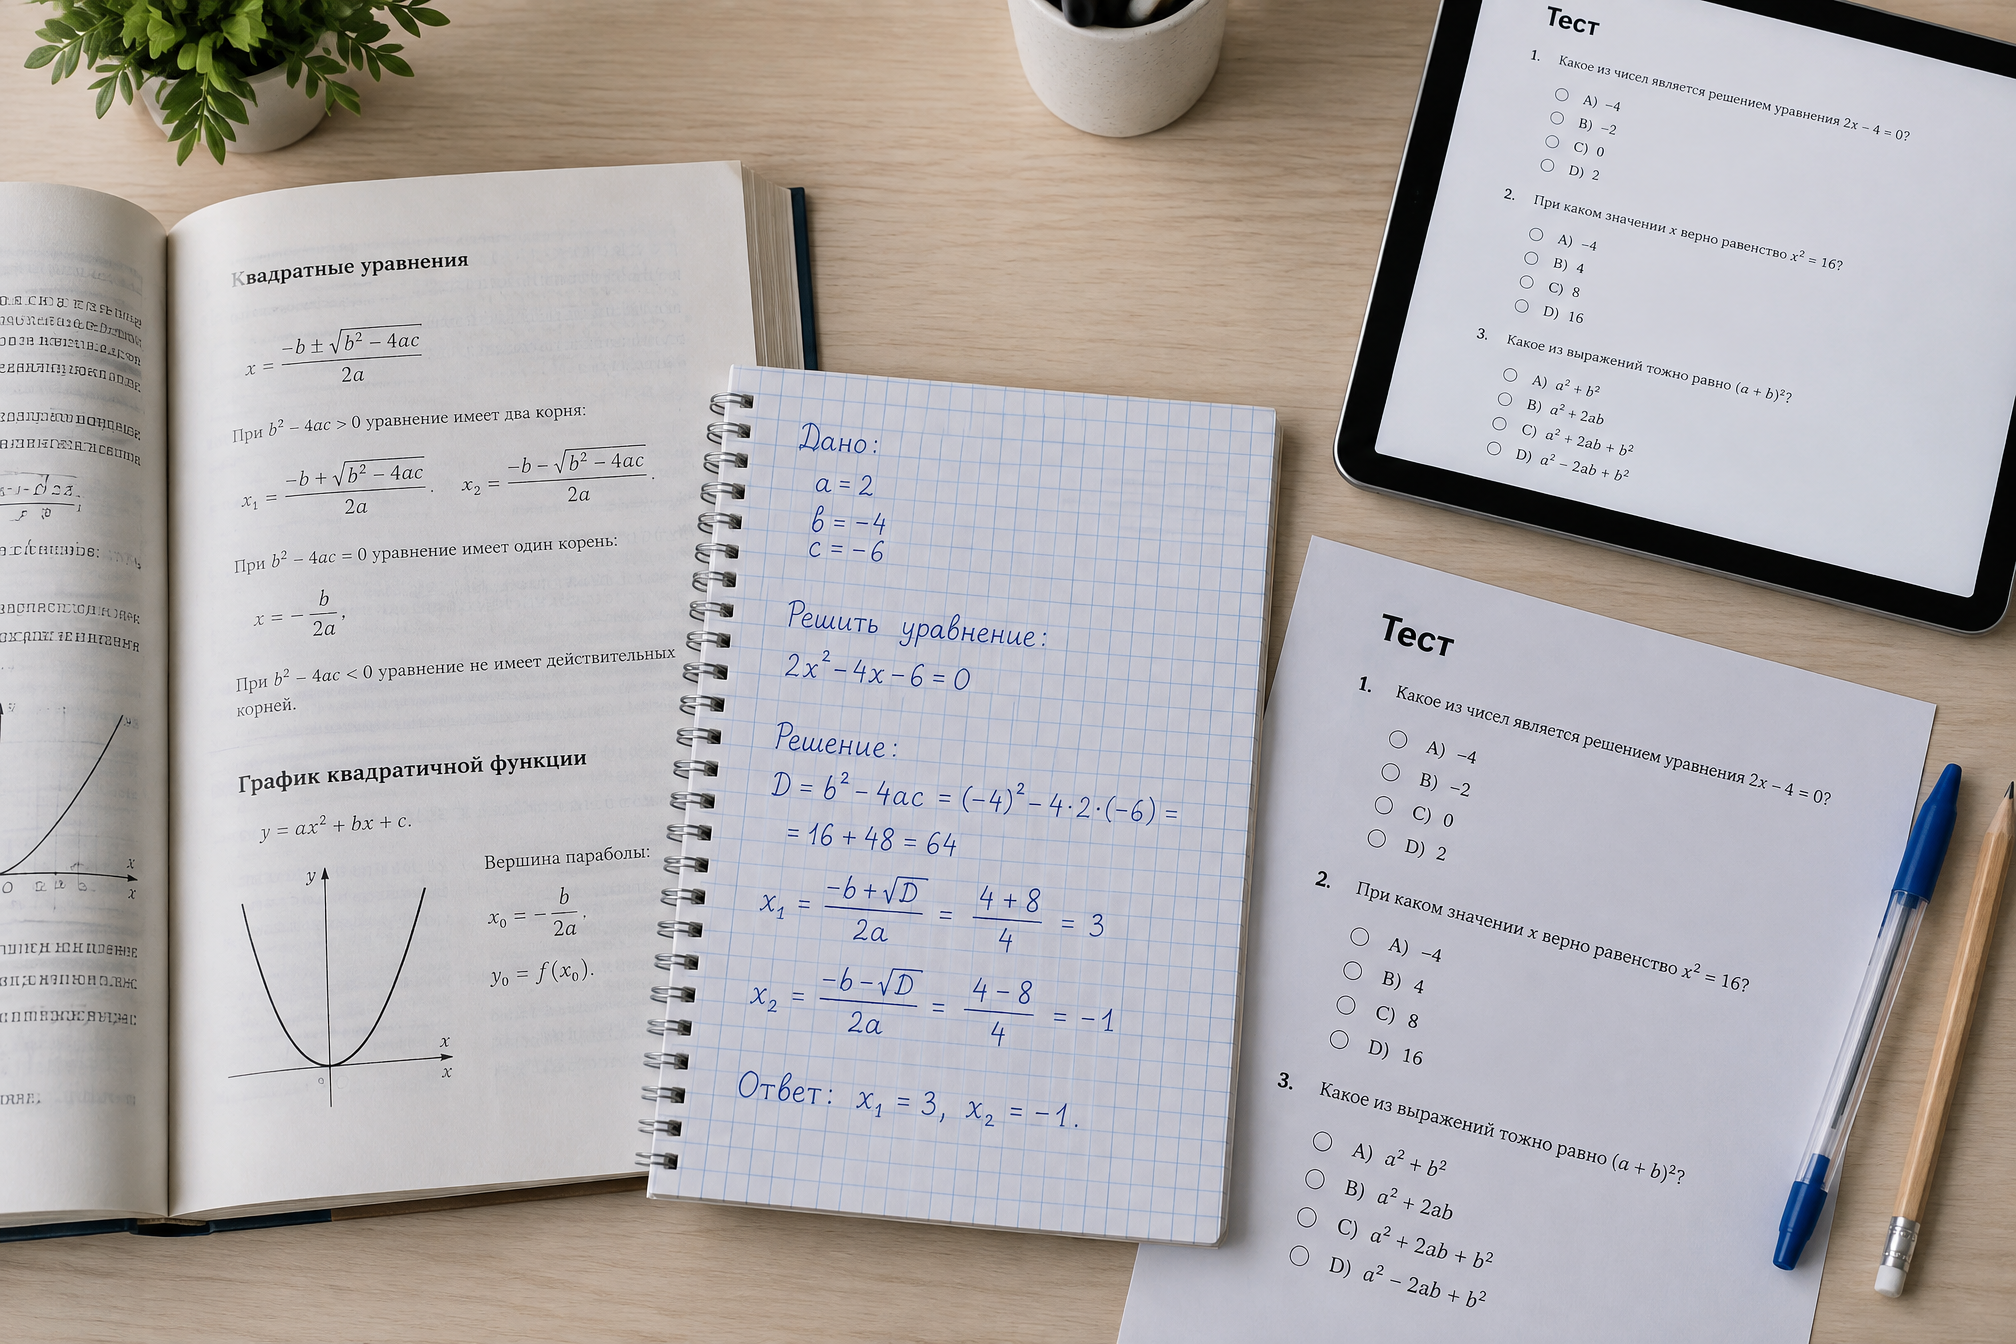 Квадратные уравнения
x = \frac{-b ± \sqrt{b² − 4ac}}{2a}
При b² − 4ac > 0 уравнение имеет два корня:
x₁ = \frac{-b + \sqrt{b² − 4ac}}{2a}. x₂ = \frac{-b − \sqrt{b² − 4ac}}{2a}.
При b² − 4ac = 0 уравнение имеет один корень:
x = − \frac{b}{2a},
При b² − 4ac < 0 уравнение не имеет действительных
корней.
График квадратичной функции
y = ax² + bx + c.
Вершина параболы:
x₀ = − \frac{b}{2a}.
y₀ = f(x₀).
y
x
x
Дано:
a = 2
в = −4
c = −6
Решить уравнение:
2x² − 4x − 6 = 0
Решение:
D = b² − 4ac = (−4)² − 4·2·(−6) =
= 16 + 48 = 64
x₁ = \frac{-b + \sqrt{D}}{2a} = \frac{4 + 8}{4} = 3
x₂ = \frac{-b − \sqrt{D}}{2a} = \frac{4 − 8}{4} = −1
Ответ: x₁ = 3, x₂ = −1.
Тест
1. Какое из чисел является решением уравнения 2x − 4 = 0?
A) −4
B) −2
C) 0
D) 2
2. При каком значении x верно равенство x² = 16?
A) −4
B) 4
C) 8
D) 16
3. Какое из выражений тожно равно (a + b)²?
A) a² + b²
B) a² + 2ab
C) a² + 2ab + b²
D) a² − 2ab + b²
Тест
1. Какое из чисел является решением уравнения 2x − 4 = 0?
A) −4
B) −2
C) 0
D) 2
2. При каком значении x верно равенство x² = 16?
A) −4
B) 4
C) 8
D) 16
3. Какое из выражений тожно равно (a + b)²?
A) a² + b²
B) a² + 2ab
C) a² + 2ab + b²
D) a² − 2ab + b²